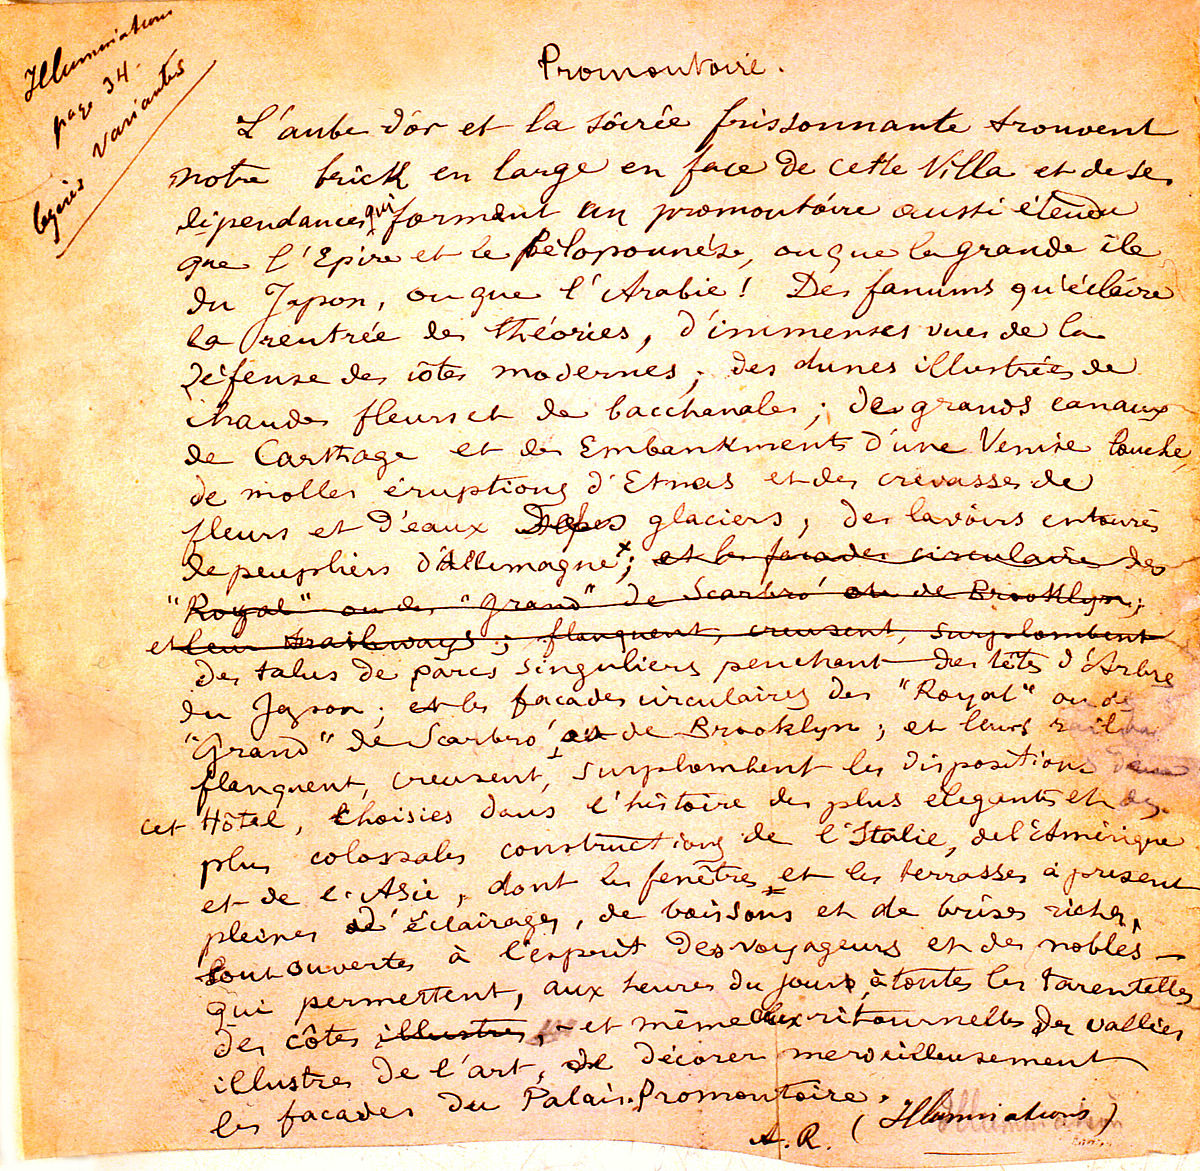 Illuminations
page 34.
légères variantes
Promontoire.
L'aube d'or et la soirée frissonnante trouvent
notre brick en large en face de cette Villa et de ses
dépendances qui forment un promontoire aussi étendu
que l'Epire et le Péloponnèse, ou que la grande île
du Japon, ou que l'Arabie! Des fanums qu'éclaire
la rentrée des théories, d'immenses vues de la
défense des côtes modernes; des dunes illustrées de
chaudes fleurs et de bacchanales; de grands canaux
de Carthage et des Embankments d'une Venise louche,
de molles éruptions d'Etnas et des crevasses de
fleurs et d'eaux des glaciers, des lavoirs entourés
de peupliers d'Allemagne; et les façades circulaires des
"Royal" ou des "Grand" de Scarbro' ou de Brooklyn;
et leurs railways; flanquent, creusent, surplombent
Des talus de parcs singuliers penchant des têtes d'Arbre
du Japon; et les façades circulaires des "Royal" ou des
"Grand" de Scarbro' ou de Brooklyn; et leurs railways
flanquent, creusent, surplombent les dispositions dans
cet Hôtel, choisies dans l'histoire des plus élégantes et des
plus colossales constructions de l'Italie, de l'Amérique
et de l'Asie, dont les fenêtres et les terrasses à présent
pleines d'éclairages, de boissons et de brises riches,
sont ouvertes à l'esprit des voyageurs et des nobles –
qui permettent, aux heures du jour, à toutes les tarentelles
des côtes illustres, – et même aux ritournelles des vallées
illustres de l'art, de décorer merveilleusement
les façades du Palais.Promontoire.
A. R. (Illuminations)